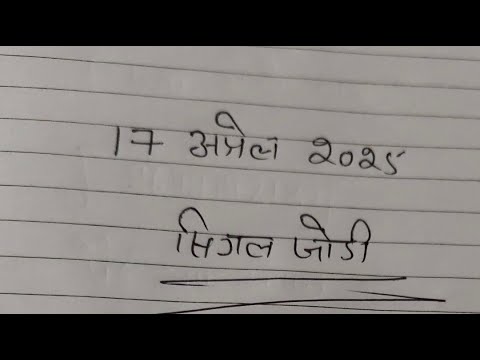 17 अप्रेल २०२५
सिगल जोडी